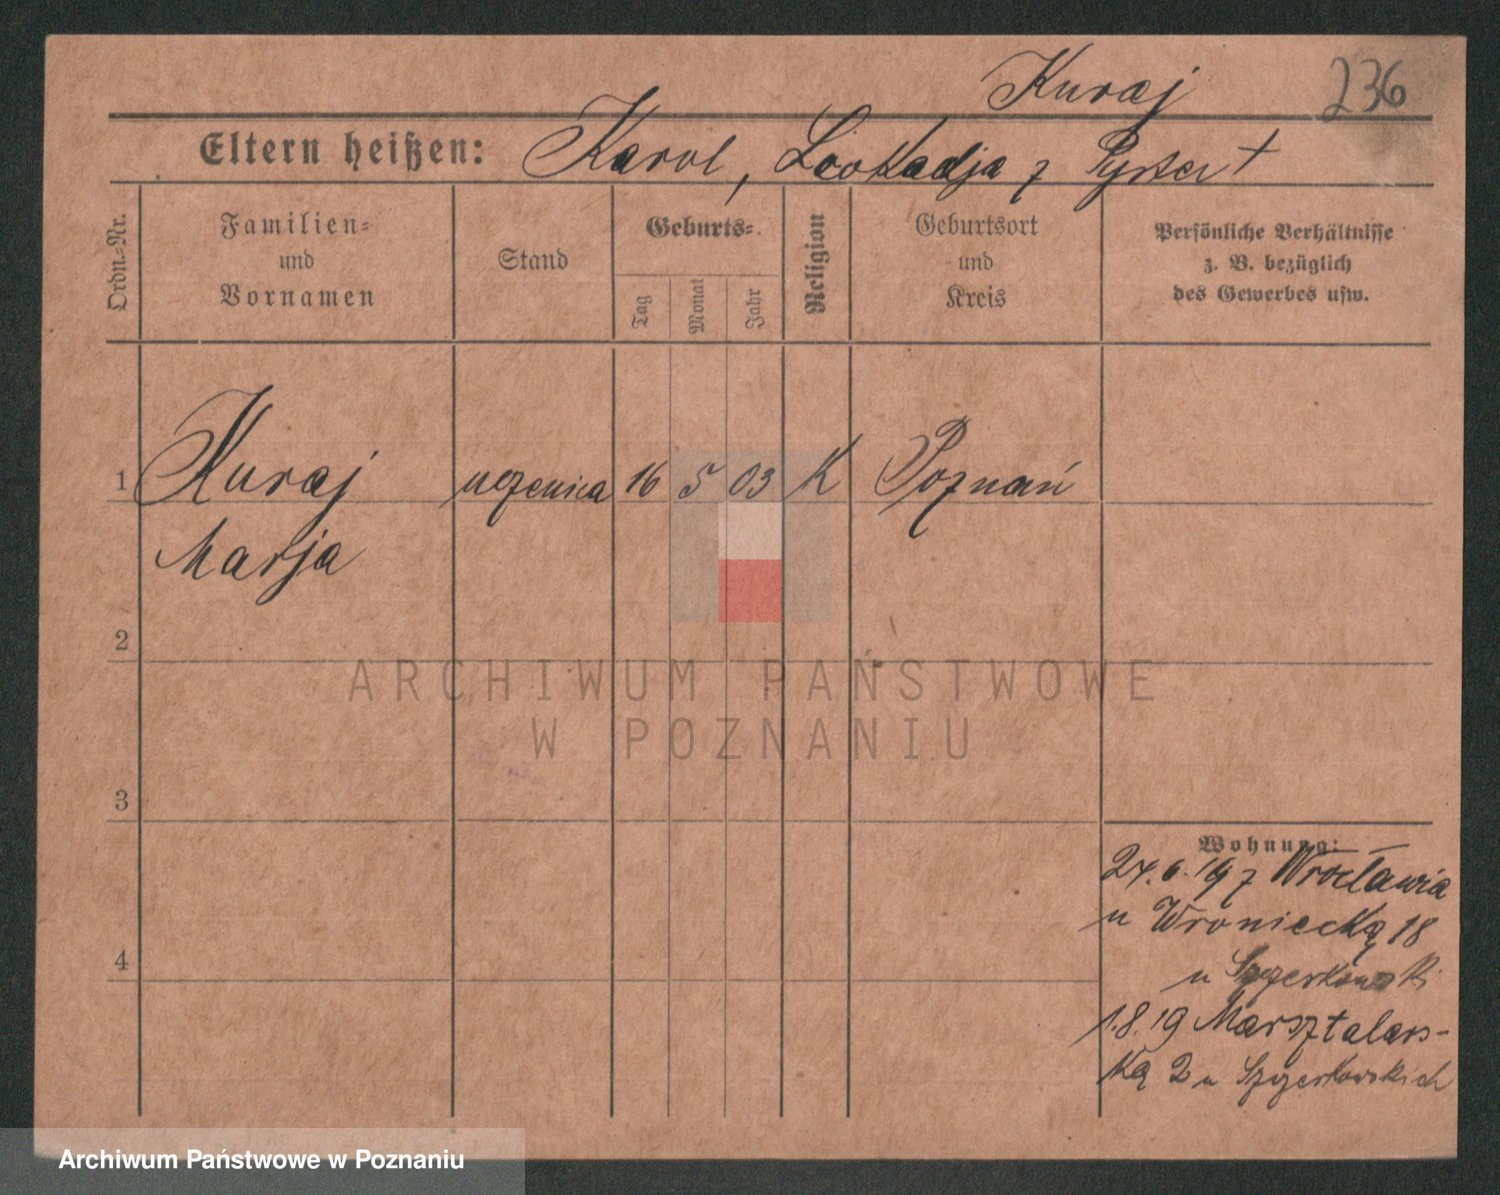 Kuraj 236
Eltern heißen: Karol, Leokadja z Pyster +
Ordn.=Nr.
Familien=
und
Vornamen
Stand
Geburts=
Tag
Monat
Jahr
Religion
Geburtsort
und
Kreis
Persönliche Verhältnisse
z. B. bezüglich
des Gewerbes usw.
1 Kuraj uczenica 16 5 03 K Poznań
Marja
2
3
4
Wohnung:
24.6.19 z Wrocławia
u Wroniecką 18
u Szczerkowski
1.8.19 Marsztalars-
ką 2 u Szczerkowskich
ARCHIWUM PAŃSTWOWE
W POZNANIU
Archiwum Państwowe w Poznaniu